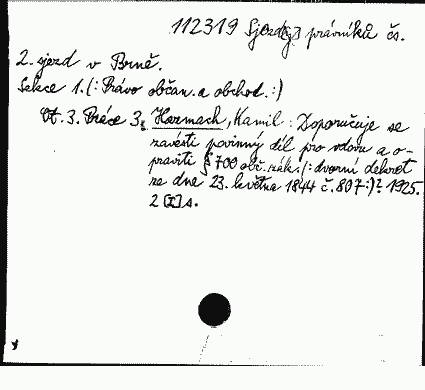 112319 Sjezdy právníků čs.
2. sjezd v Brně.
Sekce 1. (: Právo občan. a obchod. :)
Ot. 3. Práce 3. Hermach, Kamil: Doporučuje se
zavésti povinný díl pro vdovu a o-
praviti § 700 obč. zák. (: dvorní dekret
ze dne 23. května 1844 č. 807:)? 1925.
2 [I] s.